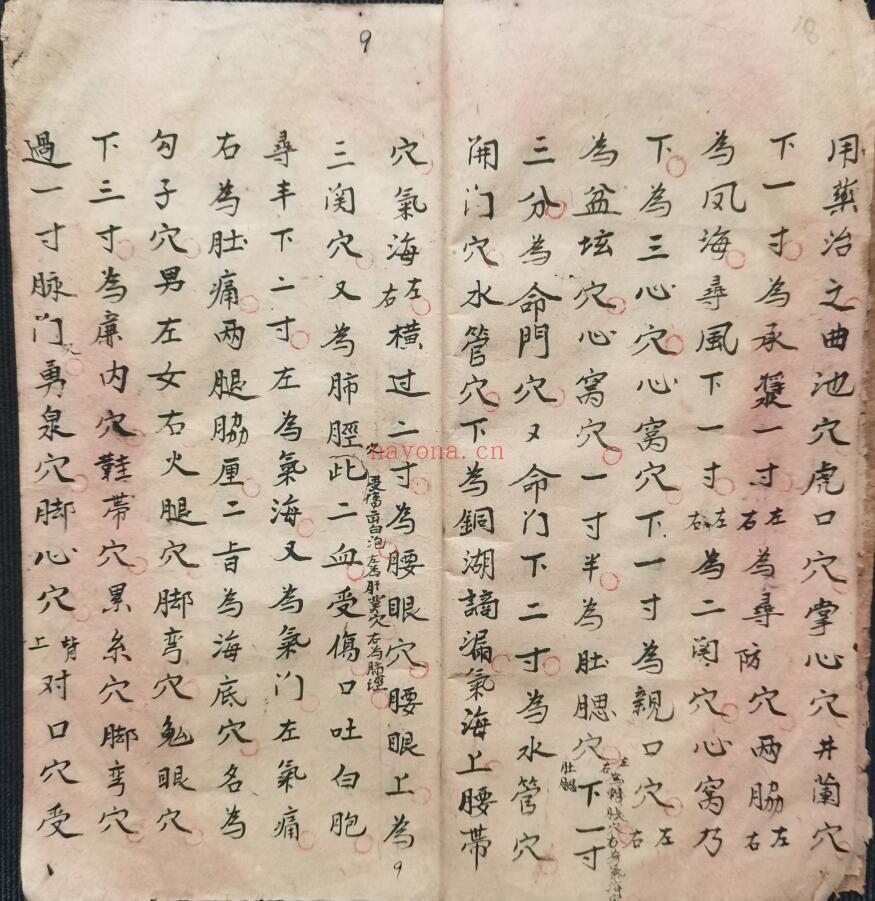 18
用藥治之曲池穴虎口穴掌心穴井蘭穴
下一寸為承漿一寸左右為尋防穴两脇左右
為凤海尋風下一寸左右為二関穴心窝乃
下為三心穴心窝穴下一寸為親口穴左右
為盆垓穴心窝穴一寸半為肚腮穴下一寸
肚腮
三分為命門穴又命门下二寸為水管穴
開门穴水管穴下為銅湖謫漏氣海上腰帶
9
穴氣海左右橫过二寸為腰眼穴腰眼上為
三関穴又為肺脛此二血受傷口吐白胞
穴受傷吐白泡左為肝穴右為肺經
尋丰下二寸左為氣海又為氣门左氣痛
右為肚痛两腿脇厘二旨為海底穴名為
勾子穴男左女右火腿穴脚弯穴兔眼穴
下三寸為廉内穴鞋帶穴累糸穴脚弯穴
過一寸脉门勇泉穴脚心穴背上对口穴受
9
nayona.cn